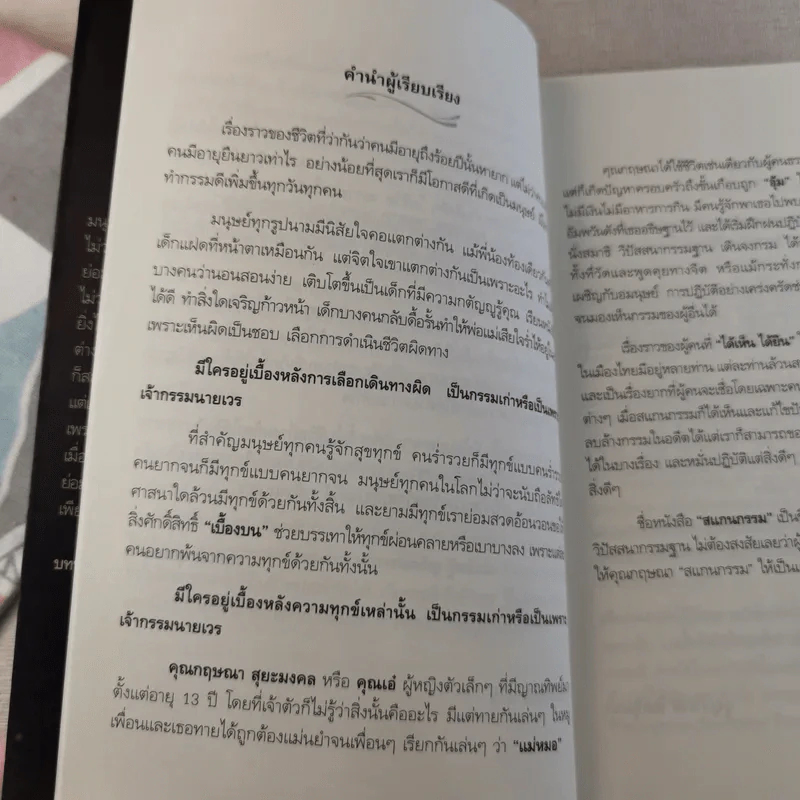 คำนำผู้เรียบเรียง
เรื่องราวของชีวิตที่ว่ากันว่าคนมีอายุถึงร้อยปีนั้นหายาก แต่ไม่ว่า
คนมีอายุยืนยาวเท่าไร อย่างน้อยที่สุดเราก็มีโอกาสดีที่เกิดเป็นมนุษย์
ทำกรรมดีเพิ่มขึ้นทุกวันทุกคน
มนุษย์ทุกรูปนามมีนิสัยใจคอแตกต่างกัน แม้พี่น้องท้องเดียวกัน
เด็กแฝดที่หน้าตาเหมือนกัน แต่จิตใจเขาแตกต่างกันเป็นเพราะอะไร
บางคนว่านอนสอนง่าย เติบโตขึ้นเป็นเด็กที่มีความกตัญญูรู้คุณ เรียน
ได้ดี ทำสิ่งใดเจริญก้าวหน้า เด็กบางคนกลับดื้อรั้นทำให้พ่อแม่เสียใจร่ำไห้
เพราะเห็นผิดเป็นชอบ เลือกการดำเนินชีวิตผิดทาง
มีใครอยู่เบื้องหลังการเลือกเดินทางผิด เป็นกรรมเก่าหรือเป็นเพราะ
เจ้ากรรมนายเวร
ที่สำคัญมนุษย์ทุกคนรู้จักสุขทุกข์ คนร่ำรวยก็มีทุกข์แบบคนร่ำรวย
คนยากจนก็มีทุกข์แบบคนยากจน มนุษย์ทุกคนในโลกไม่ว่าจะนับถือลัทธิ
ศาสนาใดล้วนมีทุกข์ด้วยกันทั้งสิ้น และยามมีทุกข์เราย่อมสวดอ้อนวอนขอ
สิ่งศักดิ์สิทธิ์ “เบื้องบน” ช่วยบรรเทาให้ทุกข์ผ่อนคลายหรือเบาบางลง เพราะ
คนอยากพ้นจากความทุกข์ด้วยกันทั้งนั้น
มีใครอยู่เบื้องหลังความทุกข์เหล่านั้น เป็นกรรมเก่าหรือเป็นเพราะ
เจ้ากรรมนายเวร
คุณกฤษณา สุยะมงคล หรือ คุณเอ๋ ผู้หญิงตัวเล็กๆ ที่มีญาณทิพย์มา
ตั้งแต่อายุ 13 ปี โดยที่เจ้าตัวก็ไม่รู้ว่าสิ่งนั้นคืออะไร มีแต่ทายกันเล่นๆ ในหมู่
เพื่อนและเธอทายได้ถูกต้องแม่นยำจนเพื่อนๆ เรียกกันเล่นๆ ว่า “แม่หมอ”
คุณกฤษณาได้ใช้ชีวิตเช่นเดียวกับผู้คน
แต่ก็เกิดปัญหาครอบครัวถึงขั้นเกือบถูก “อุ้ม”
ไม่มีเงินไม่มีอาหารการกิน มีคนรู้จักพาเธอไปพบ
อัมพวันดังที่เธออธิษฐานไว้ และได้เริ่มฝึกฝนปฏิบัติ
นั่งสมาธิ วิปัสสนากรรมฐาน เดินจงกรม ได้
ทั้งที่วัดและพูดคุยทางจิต หรือแม้กระทั่ง
เผชิญกับอมนุษย์ การปฏิบัติอย่างเคร่งครัด
จนมองเห็นกรรมของผู้อื่นได้
เรื่องราวของผู้คนที่ “ได้เห็น ได้ยิน”
ในเมืองไทยมีอยู่หลายท่าน แต่ละท่านล้วน
และเป็นเรื่องยากที่ผู้คนจะเชื่อโดยเฉพาะ
ต่างๆ เมื่อสแกนกรรมก็ได้เห็นและแก้ไข
ลบล้างกรรมในอดีตได้แต่เราก็สามารถขอ
ได้ในบางเรื่อง และหมั่นปฏิบัติแต่สิ่งดีๆ
สิ่งดีๆ
ชื่อหนังสือ “สแกนกรรม” เป็น
วิปัสสนากรรมฐาน ไม่ต้องสงสัยเลยว่า
ให้คุณกฤษณา “สแกนกรรม” ให้เป็น